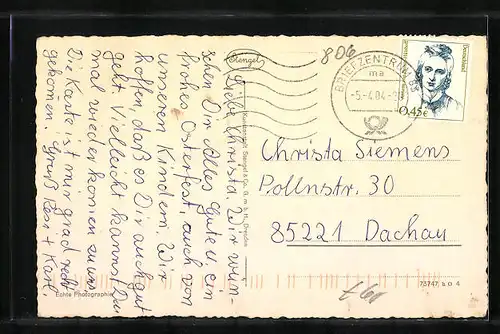 Liebe Christa. Wir wün-
schen Dir Alles Gute u. ein
frohes Osterfest, auch von
unseren Kindern. Wir
hoffen, daß es Dir auch gut
geht. Vielleicht kannst Du
mal wieder komen zu uns
Die Karte ist mir grad recht
gekomen. Gruß Resi + Karl.
Stengel
806
BRIEFZENTRUM
ma
-5.-4.04
Deutschland
0,45€
Christa Siemens
Pollnstr. 30
85221 Dachau
Echte Photographie
73747 b D 4